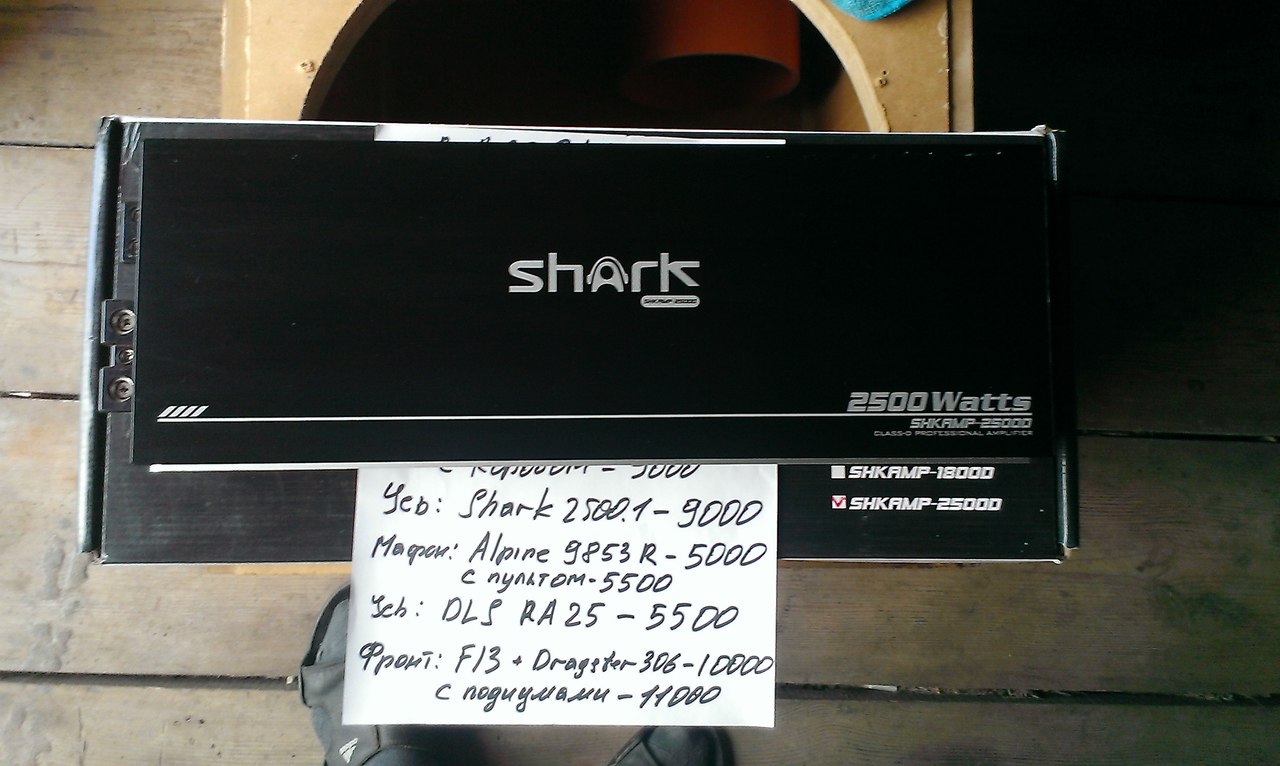 shark
SHKAMP-2500D
2500 Watts
SHKAMP-2500D
CLASS-D PROFESSIONAL AMPLIFIER
SHKAMP-1800D
SHKAMP-2500D
с коробом - 5000
Усь: Shark 2500.1 - 9000
Мафон: Alpine 9853 R - 5000
с пультом - 5500
Усь: DLS RA25 - 5500
Фронт: F13 + Dragster 306 - 10000
с подиумами - 11000